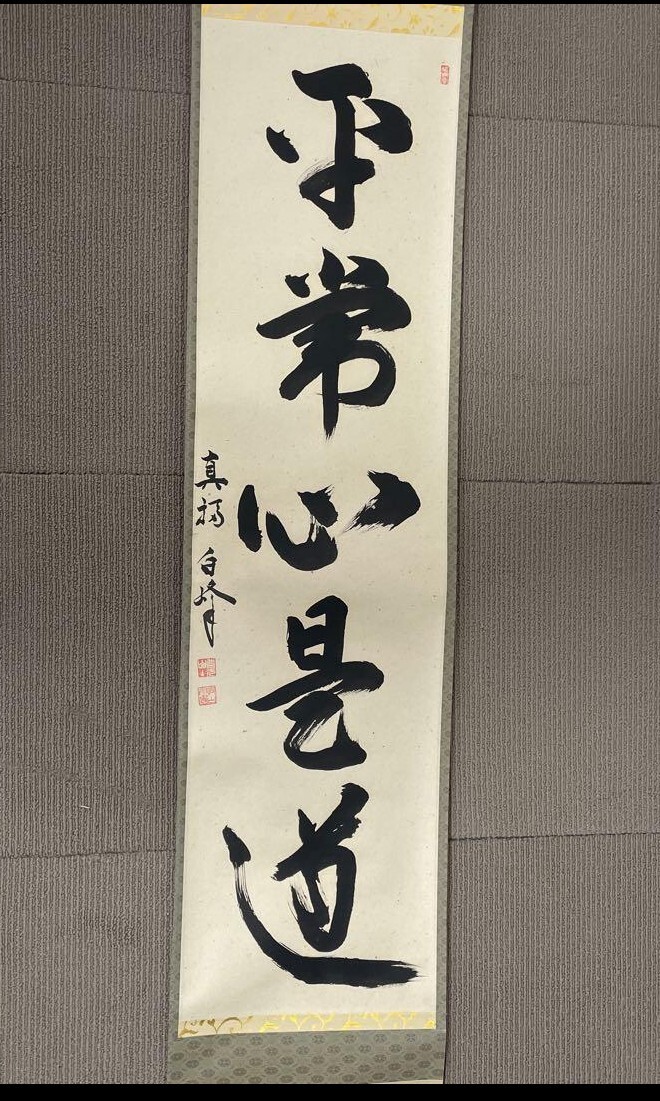 平常心是道
真福 白峰